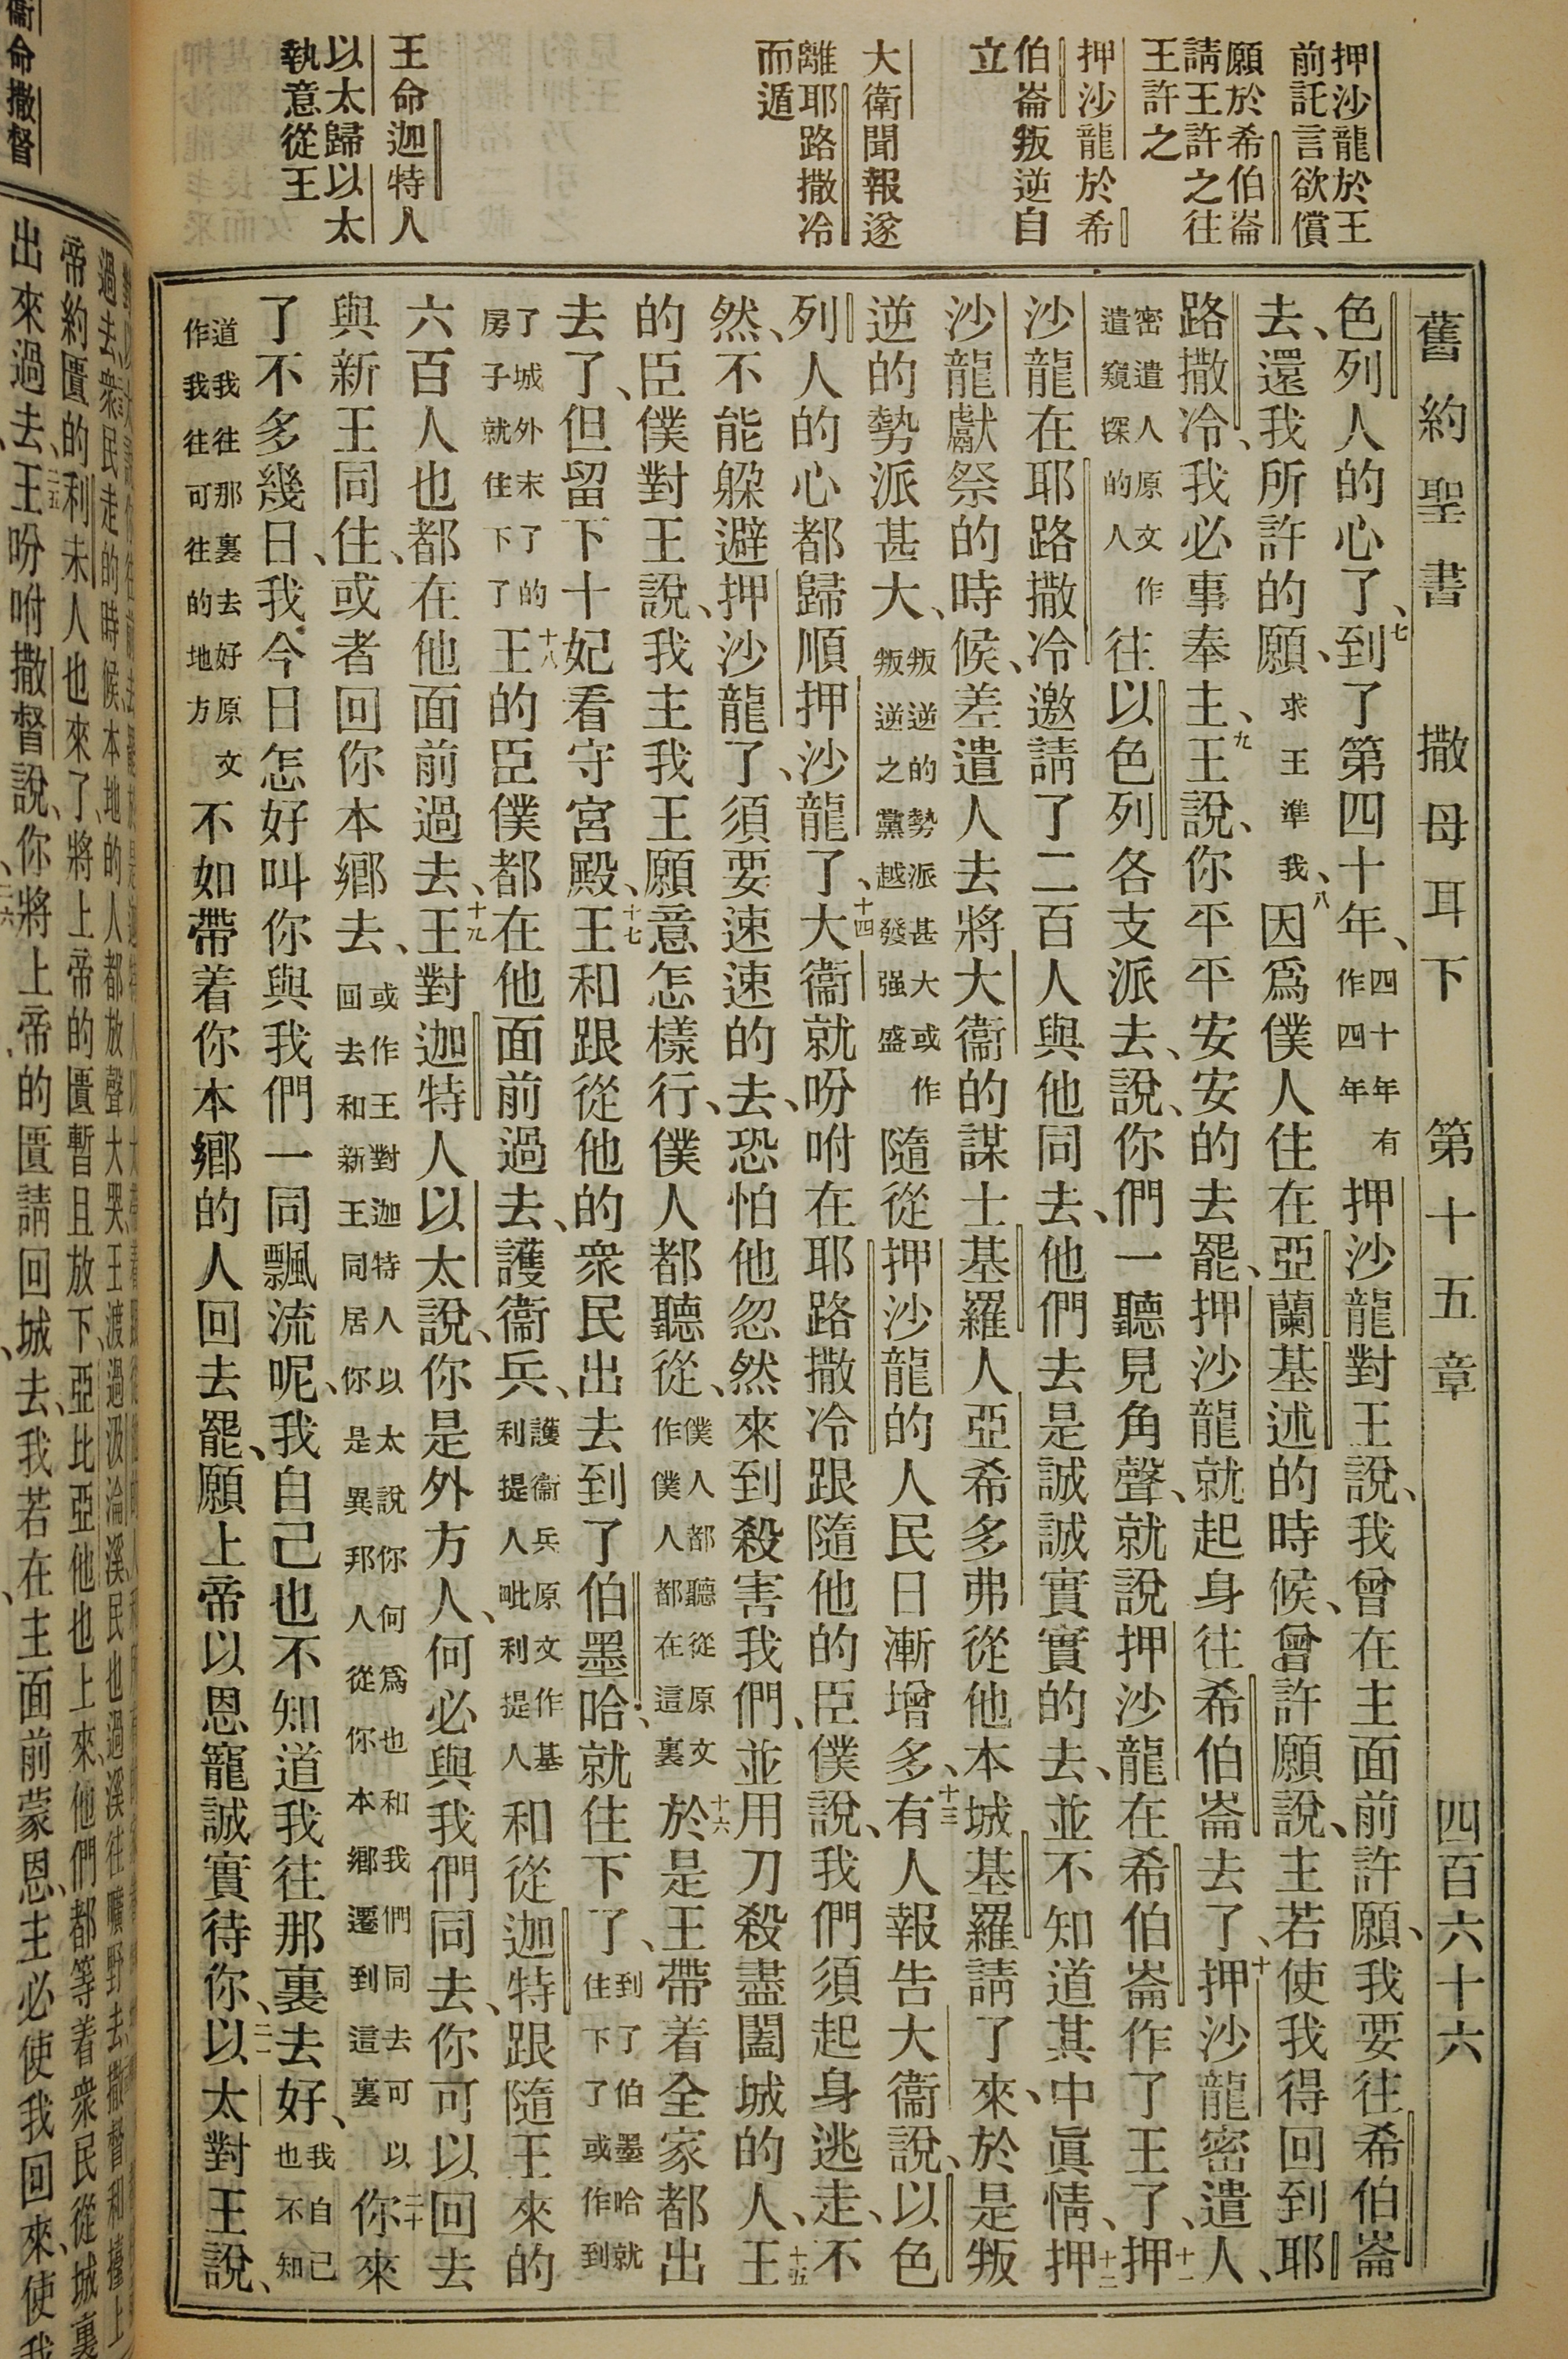 押沙龍於王
前託言欲償
願於希伯崙
請王許之往
王許之
押沙龍於希
伯崙叛逆自
立
大衛聞報遂
離耶路撒冷
而遁
王命迦特人
以太歸以太
執意從王
舊約聖書 撒母耳下 第十五章 四百六十六
色列人的心了、七到了第四十年、四十年有作四年押沙龍對王說、我曾在主面前許願、我要往希伯崙
去、還我所許的願、求王準我、八因爲僕人住在亞蘭基述的時候、曾許願說、主若使我得回到耶
路撒冷、我必事奉主、九王說、你平平安安的去罷、押沙龍就起身往希伯崙去了、十押沙龍密遣人、
密遣人原文作遣窺探的人往以色列各支派去、說、你們一聽見角聲、就說押沙龍在希伯崙作了王了、十一押
沙龍在耶路撒冷邀請了二百人與他同去、他們去是誠誠實實的去、並不知道其中眞情、十二押
沙龍獻祭的時候、差遣人去將大衞的謀士基羅人亞希多弗從他本城基羅請了來、於是叛
逆的勢派甚大、叛逆的勢派甚大或作叛逆之黨越發强盛隨從押沙龍的人民日漸增多、十三有人報告大衞說、以色
列人的心都歸順押沙龍了、十四大衞就吩咐在耶路撒冷跟隨他的臣僕說、我們須起身逃走、不
然、不能躱避押沙龍了、須要速速的去、恐怕他忽然來到殺害我們、並用刀殺盡闔城的人、十五王
的臣僕對王說、我主我王願意怎樣行、僕人都聽從、僕人都聽從原文作僕人都在這裏十六於是王帶着全家都出
去了、但留下十妃看守宮殿、十七王和跟從他的衆民出去到了伯墨哈、就住下了、到了伯墨哈就住下了或作到
了城外末了的房子就住下了十八王的臣僕都在他面前過去、護衞兵、護衞兵原文作基利提人毗利提人和從迦特跟隨王來的
六百人也都在他面前過去、十九王對迦特人以太說、你是外方人、何必與我們同去、你可以回去
與新王同住、或者回你本鄉去、或作王對迦特人以太說你何爲也和我們同去可以回去和新王同居你是異邦人從你本鄉遷到這裏二十你來
了不多幾日、我今日怎好叫你與我們一同飄流呢、我自己也不知道我往那裏去好、我自己也不知
道我往那裏去好原文作我往可往的地方不如帶着你本鄉的人回去罷、願上帝以恩寵誠實待你、二一以太對王說、
帝約匱的利未人也來了、將上帝的匱暫且放下、亞比亞他也上來、他們都等着衆民從城裏
出來過去、二五王吩咐撒督說、你將上帝的匱請回城去、我若在主面前蒙恩、主必使我回來、使我